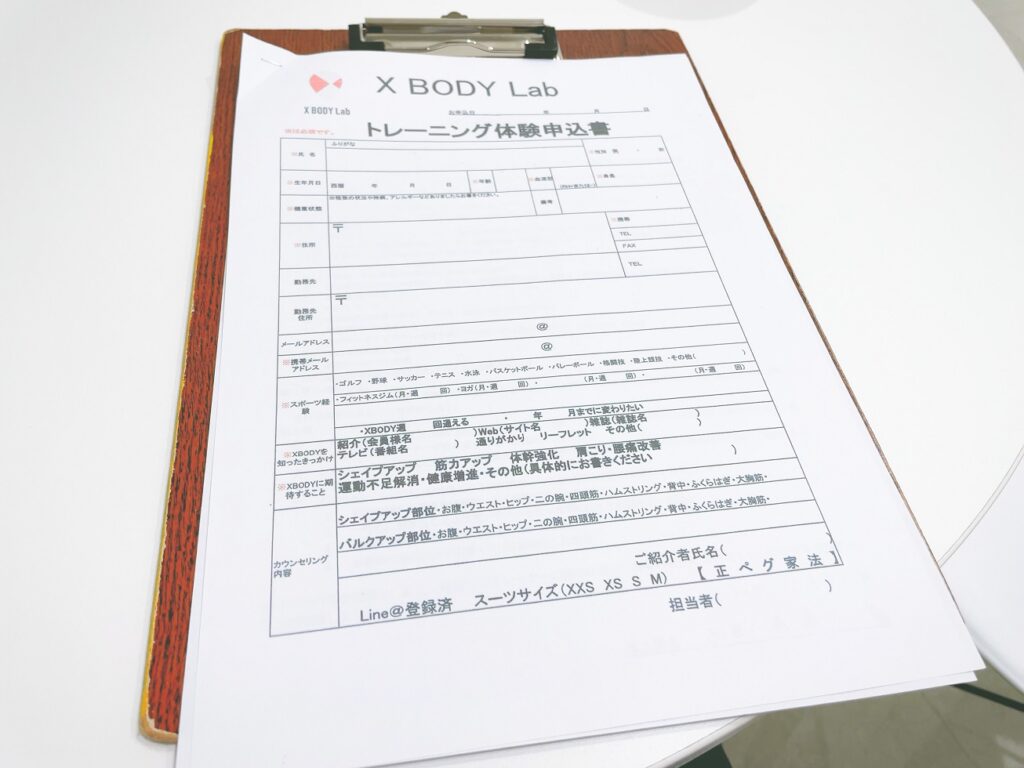 X BODY Lab
X BODY Lab
お申込日 年 月 日
※は必須です。
トレーニング体験申込書
ふりがな
※氏 名
※性別 男 ・ 女
※生年月日 西暦 年 月 日 ※年齢 ※血液型 (RH+またはー) ※身長
※健康状態 ※現在の状況や持病、アレルギーなどありましたらお書きください。 備考
※住所 〒
※携帯
TEL
FAX
勤務先
TEL
勤務先
住所
〒
メールアドレス @
※携帯メール
アドレス
@
※スポーツ経
験
・ゴルフ ・野球 ・サッカー ・テニス ・水泳 ・バスケットボール ・バレーボール ・格闘技 ・陸上競技 ・その他( )
・フィットネスジム(月・週 回) ・ヨガ(月・週 回) ・ (月・週 回) ・ (月・週 回)
・XBODY週 回通える ・ 年 月までに変わりたい
※XBODYを
知ったきっかけ
紹介(会員様名 )Web(サイト名 )雑誌(雑誌名 )
テレビ(番組名 ) 通りがかり リーフレット その他( )
※XBODYに期
待すること
シェイプアップ 筋力アップ 体幹強化 肩こり・腰痛改善
運動不足解消・健康増進・その他(具体的にお書きください )
カウンセリング
内容
シェイプアップ部位・お腹・ウエスト・ヒップ・二の腕・四頭筋・ハムストリング・背中・ふくらはぎ・大胸筋・
バルクアップ部位・お腹・ウエスト・ヒップ・二の腕・四頭筋・ハムストリング・背中・ふくらはぎ・大胸筋・
ご紹介者氏名( )
Line@登録済 スーツサイズ(XXS XS S M) 【 正 ペ グ 家 法 】
担当者( )